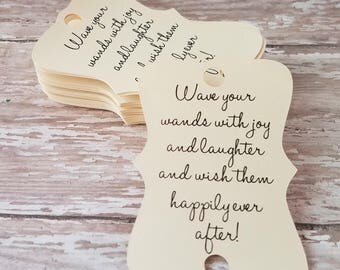 Wave your
wands with joy
and laughter
and wish them
ily ever
r!
Wave your
wands with joy
and laughter
and wish them
happily ever
after!